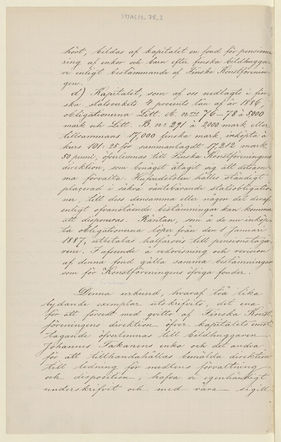 hört, bildas af kapitalet en fond för pensione-
ring af enkor och barn efter finska bildhugga-
re enligt bestämmande af Finska Konstförenin-
gen.
d.) Kapitalet, som af oss nedlagts i fin-
ska statsverkets 4 procents lån af år 1886,
obligationerna Litt. A. 76–78 à 5000
mark och Litt. B. à 2000 mark eller
tillsammans 17,000 finska mark, inköpta à
kurs 101.25 för sammanlagdt 17,212 mark
50 penni, öfverlemnas till Finska Konstföreningens
direktion, som benäget åtagit sig att detsam-
ma förvalta. Kapitalet bör hållas ständigt
placerad i säkra räntebärande statsobligatio-
ner till dess densamma eller någon del deraf
enligt ofvanstående bestämningar kan komma
att disponeras. Räntan, som å de nu inköp-
ta obligationerna löper från den 1 Januari
1887, utbetalas halfårsvis till pensionstaga-
ren. I afseende å redovisning och revision
af denna fond gälla samma bestämningar
som för Konstföreningens öfriga fonder.
Denna urkund, hvaraf två lika
lydande exemplar utskrifvits, det ena
för att förvaras med qvitto af Finska Konst-
föreningens direktion öfver kapitalets mot-
tagande öfverlemnas till bildhuggaren
Johannes Takanens enka och det andra
för att tillhandahållas bemälda direktion
till ledning för medlens förvaltning
och disposition, hafva vi egenhändigt
underskrifvit och med våra sigill